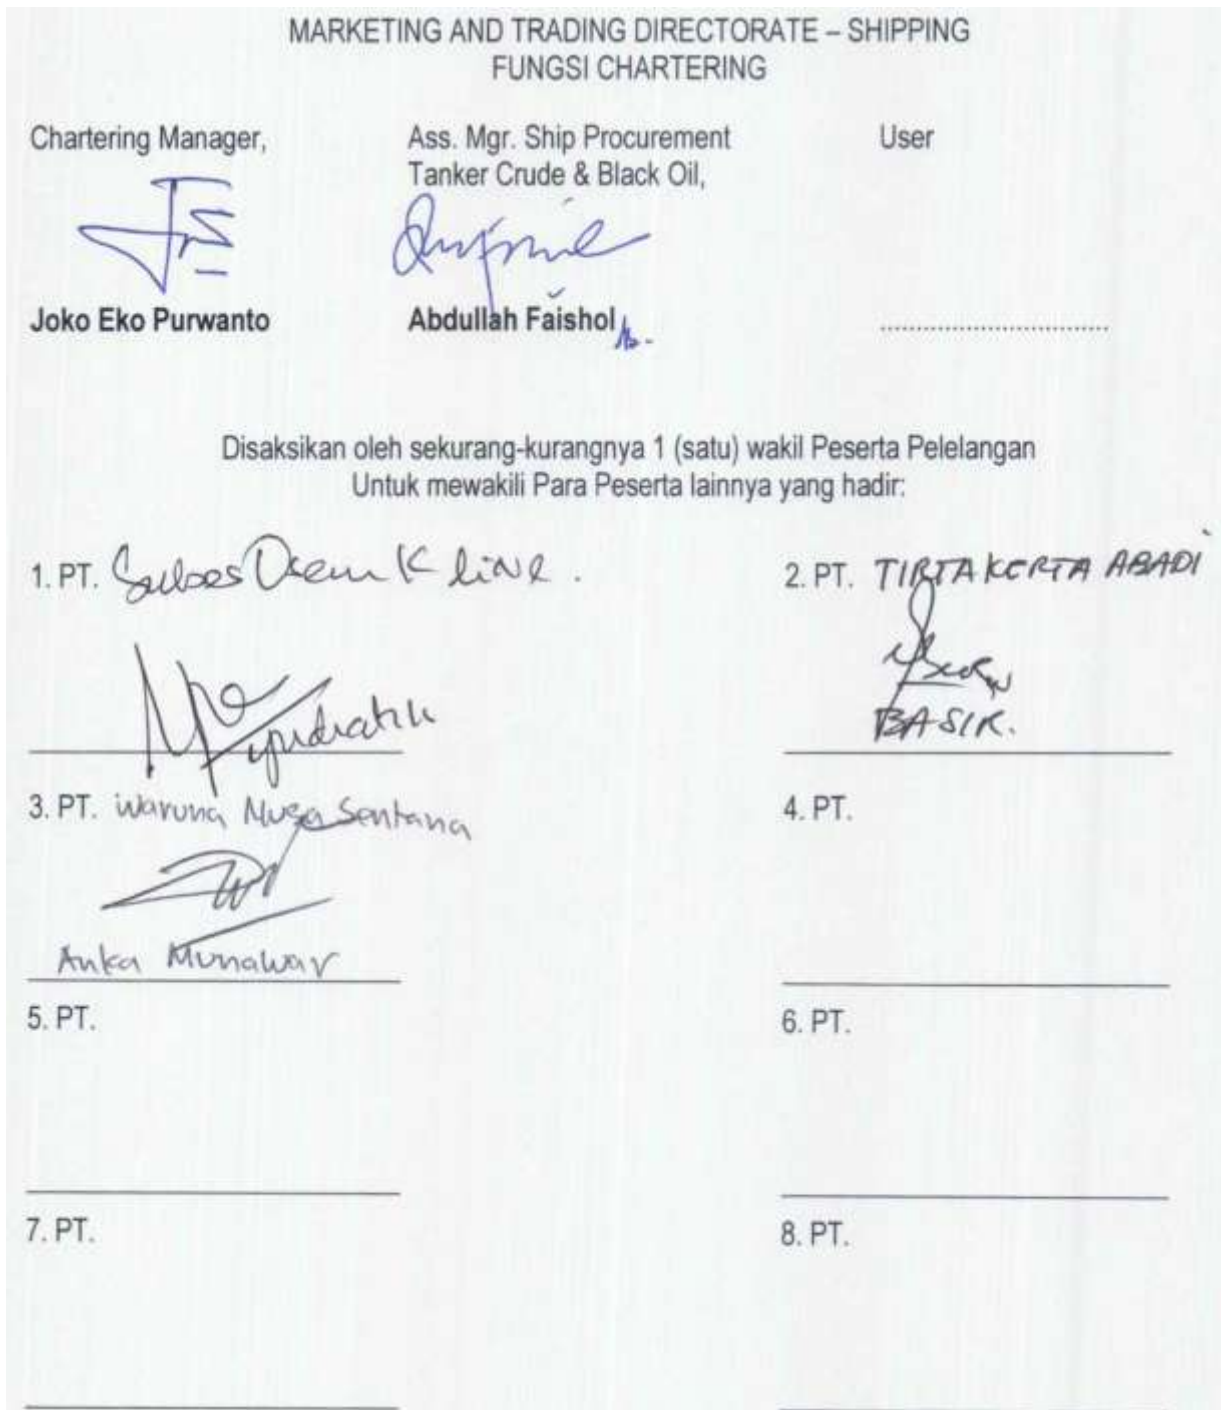 MARKETING AND TRADING DIRECTORATE – SHIPPING
FUNGSI CHARTERING
Chartering Manager,
Ass. Mgr. Ship Procurement
Tanker Crude & Black Oil,
User
Joko Eko Purwanto
Abdullah Faishol
..............................
Disaksikan oleh sekurang-kurangnya 1 (satu) wakil Peserta Pelelangan
Untuk mewakili Para Peserta lainnya yang hadir:
1. PT. Sukses Osean K line.
2. PT. TIRTA KERTA ABADI
BASIR.
3. PT. Waruna Nusa Sentana
Anka Munawar
4. PT.
5. PT.
6. PT.
7. PT.
8. PT.